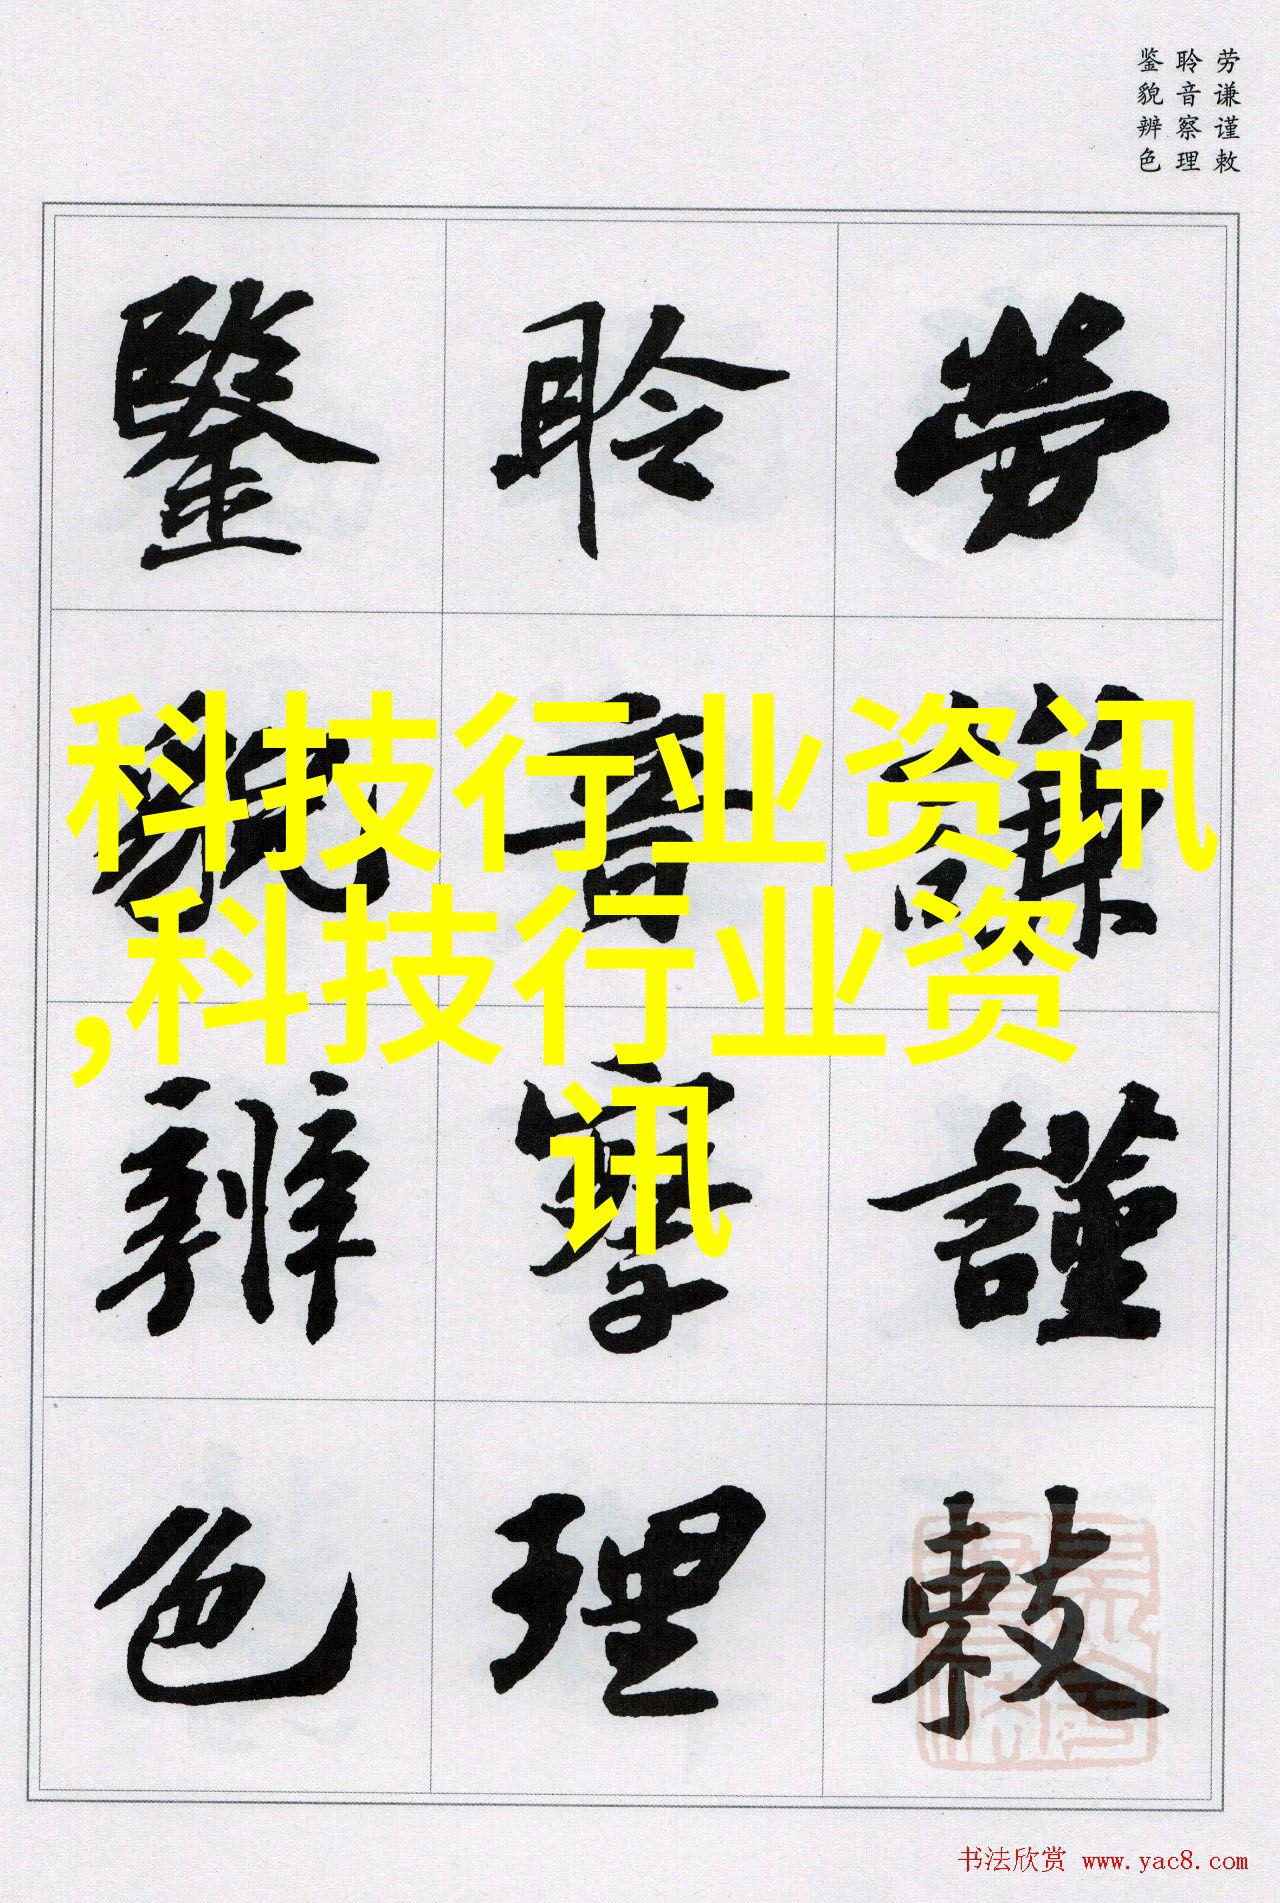 劳谦谨敕
聆音察理
鉴貌辨色
勞謙謹敕
聆音察理
鑒貌辨色
科技行业资讯
,科技行业资
讯
书法欣赏 www.yac8.com